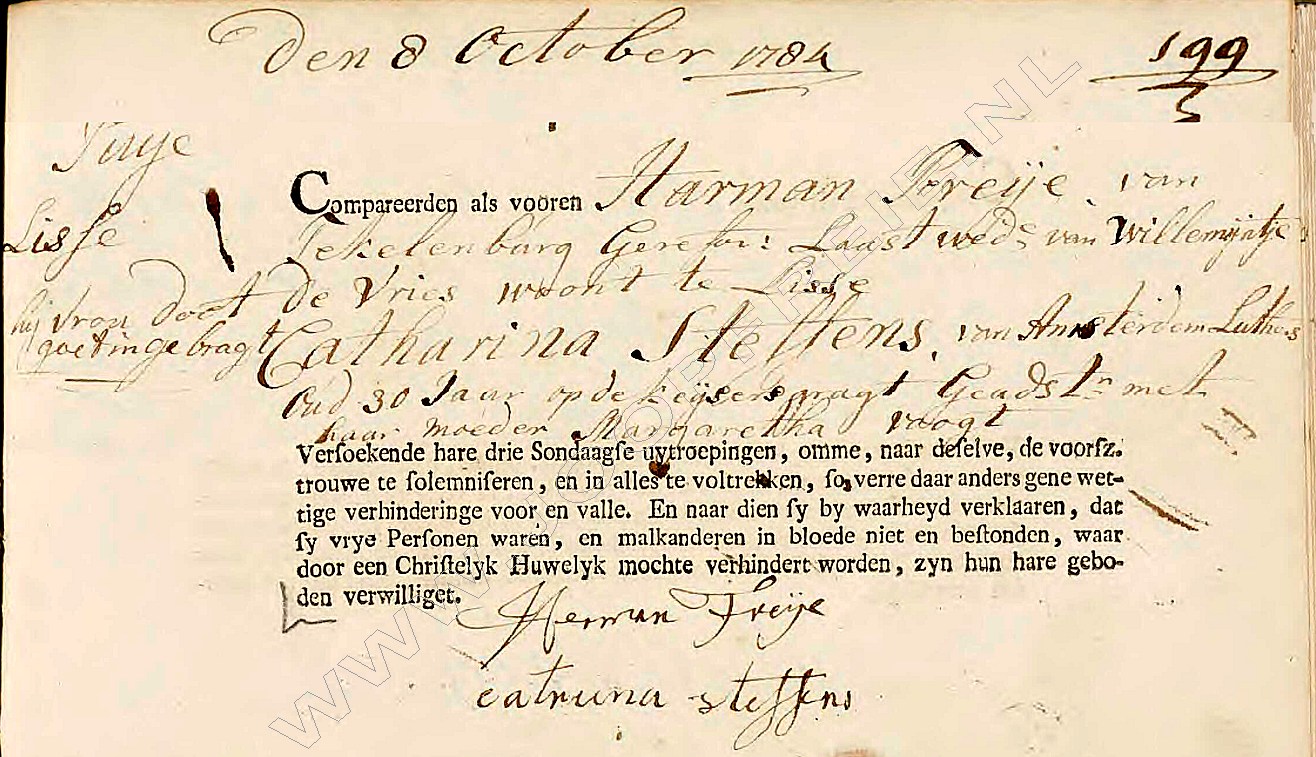 Den 8 October 1784
199
Lisse
hij vrou doet
goet ingebragt
Compareerden als vooren Harman Freije van
Tekelenburg Gerefor: Laast wedr van Willemyntje
de Vries woont te Lisse
Catharina Steffens, van Amsterdam Luthers
Oud 30 Jaar op de Keysersgragt Geadstn met
haar moeder Margaretha Voogt
Verſoekende hare drie Sondaagſe uytroepingen, omme, naar deſelve, de voorſz.
trouwe te ſolemniſeren, en in alles te voltrekken, ſo verre daar anders gene wet-
tige verhinderinge voor en valle. En naar dien ſy by waarheyd verklaaren, dat
ſy vrye Perſonen waren, en malkanderen in bloede niet en beſtonden, waar
door een Chriſtelyk Huwelyk mochte verhindert worden, zyn hun hare gebo-
den verwilliget.
Herman Freije
catruna steffens